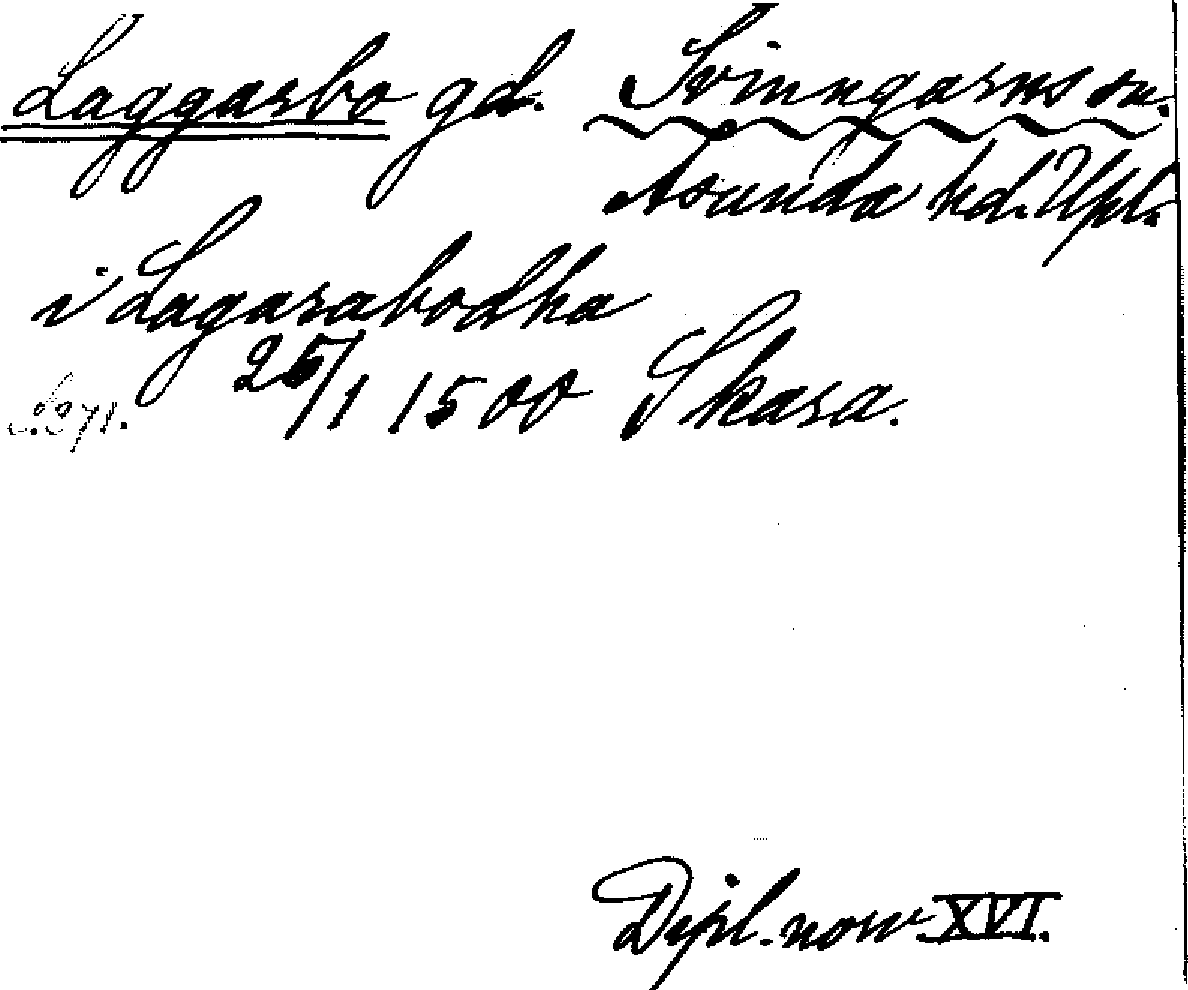 Laggarbo gd. Svinngarns sn.
Åsunda hd. Upl.
i Lagarabodha
25/1 1500 Skara.
Dipl. norv. XVI.